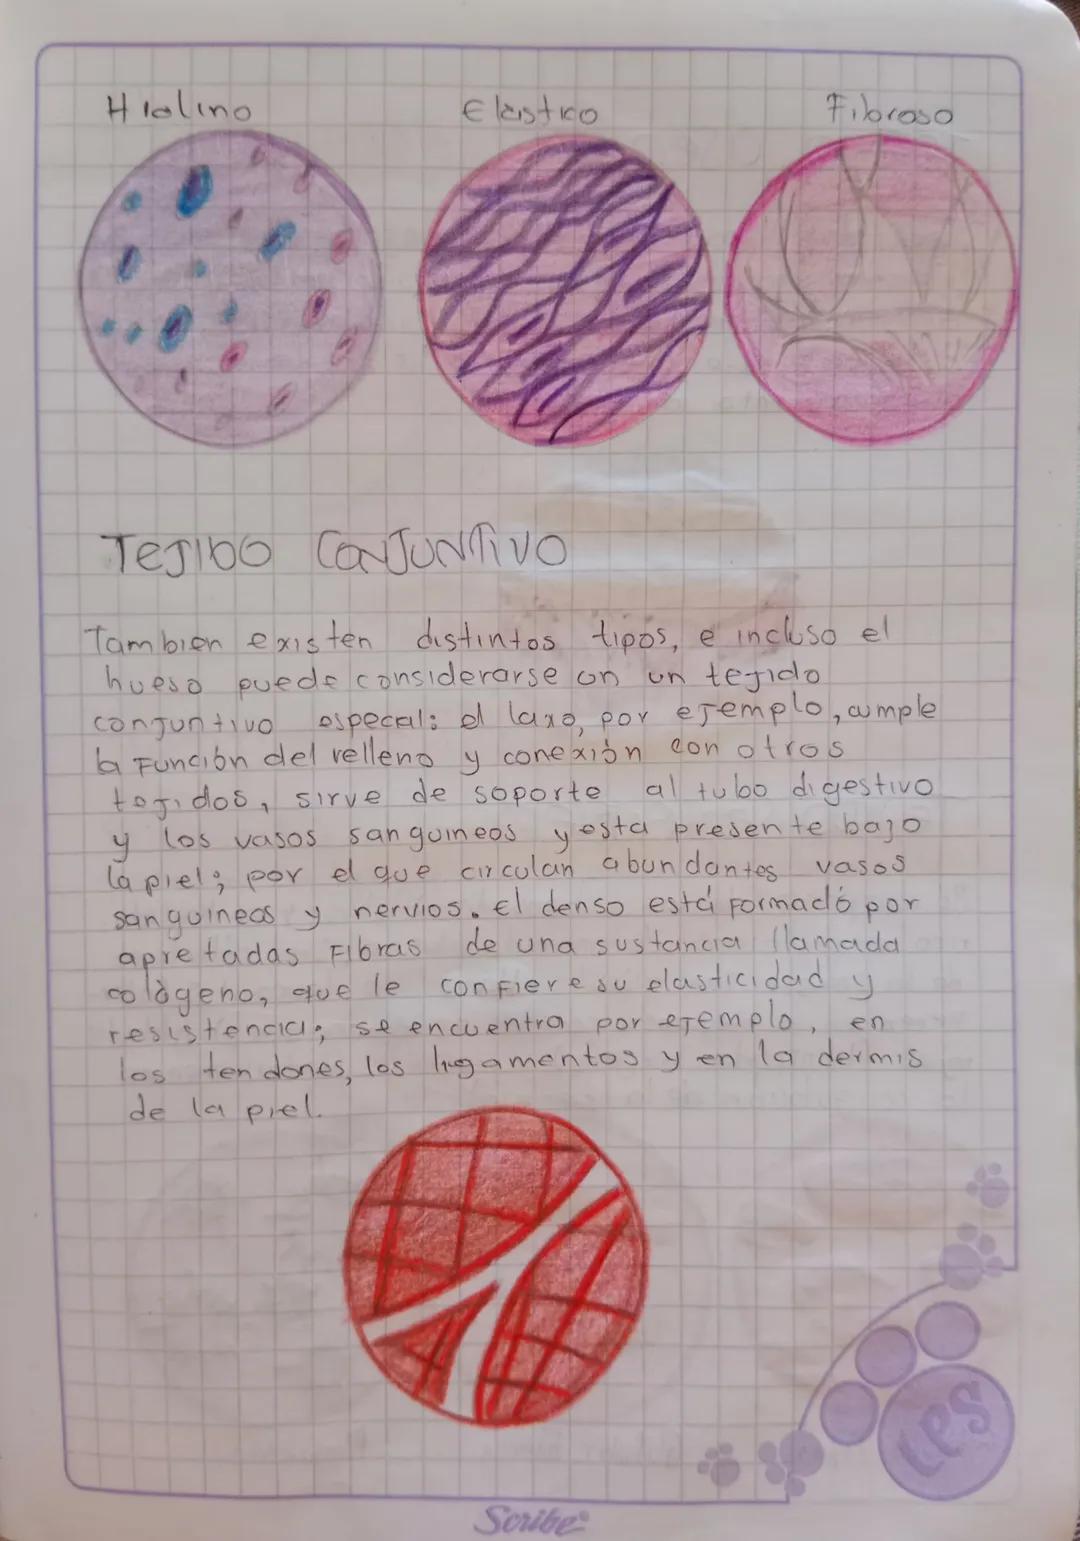 Hialino Elástico Fibroso
TEJIDO CONJUNTIVO
Tambien existen distintos tipos, e incluso el
hueso puede considerarse un un tejido
conjuntivo especal: el laxo, por ejemplo, cumple
la Función del relleno y conexión con otros
tejidos, sirve de soporte al tubo digestivo
y los vasos sanguineos y esta presente bajo
la piel; por el que circulan abundantes vasos
sanguineos y nervios. El denso está formadó por
apretadas Fibras de una sustancia llamada
colágeno, que le confiere su elasticidad y
resistencia; se encuentra por ejemplo, en
los tendones, los ligamentos y en la dermis
de la piel.
LPS
Scribe